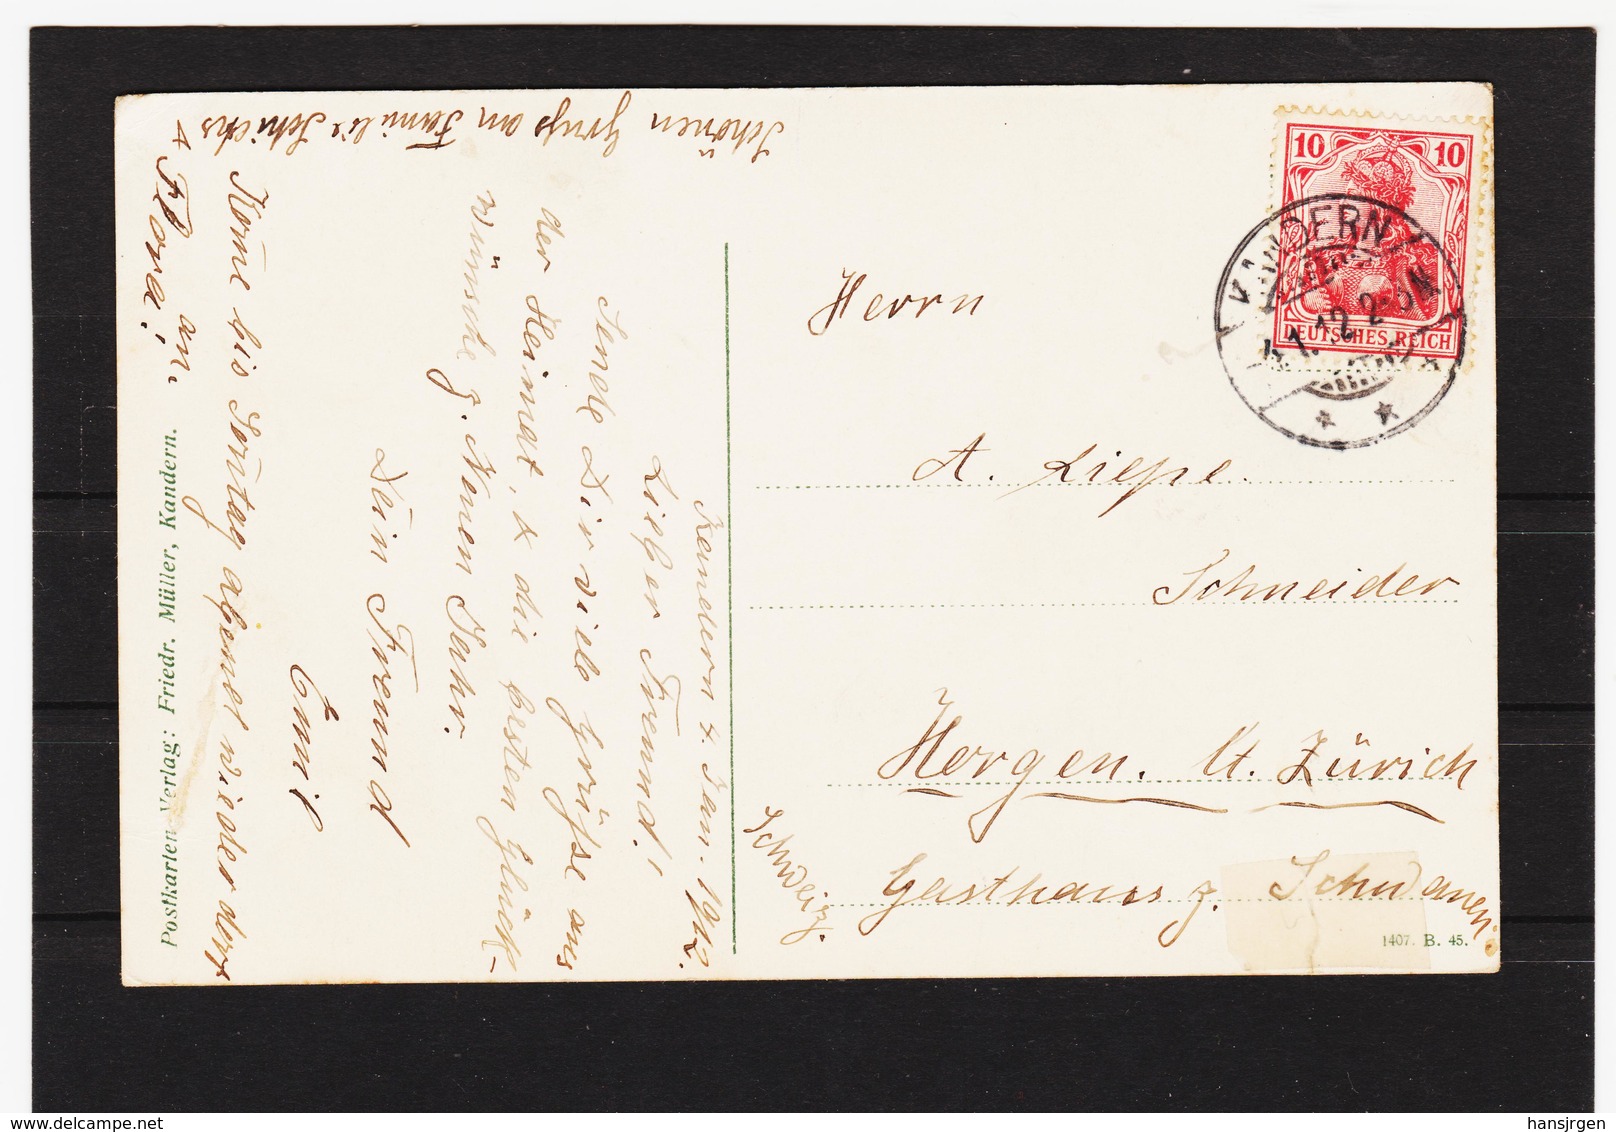 Kandern 4. Jan. 1912.
Lieber Freund!
Sende Dir viele Grüsse aus
der Heimat, & die besten Glück-
wünsche z. Neuen Jahr.
Dein Freund
Emil
Kome bis Sontag abend wieder dort
an.
Schönen Gruss an Familie
& Flora!
Postkarten-Verlag: Friedr. Müller, Kandern.
10 10
DEUTSCHES REICH
KANDERN
4.1.12. 2-3N
Herrn
A. Liepe.
Schneider
Horgen. Kt. Zürich
Gasthaus z. Schwanen
Schweiz.
1407. B. 45.
hansjrgen